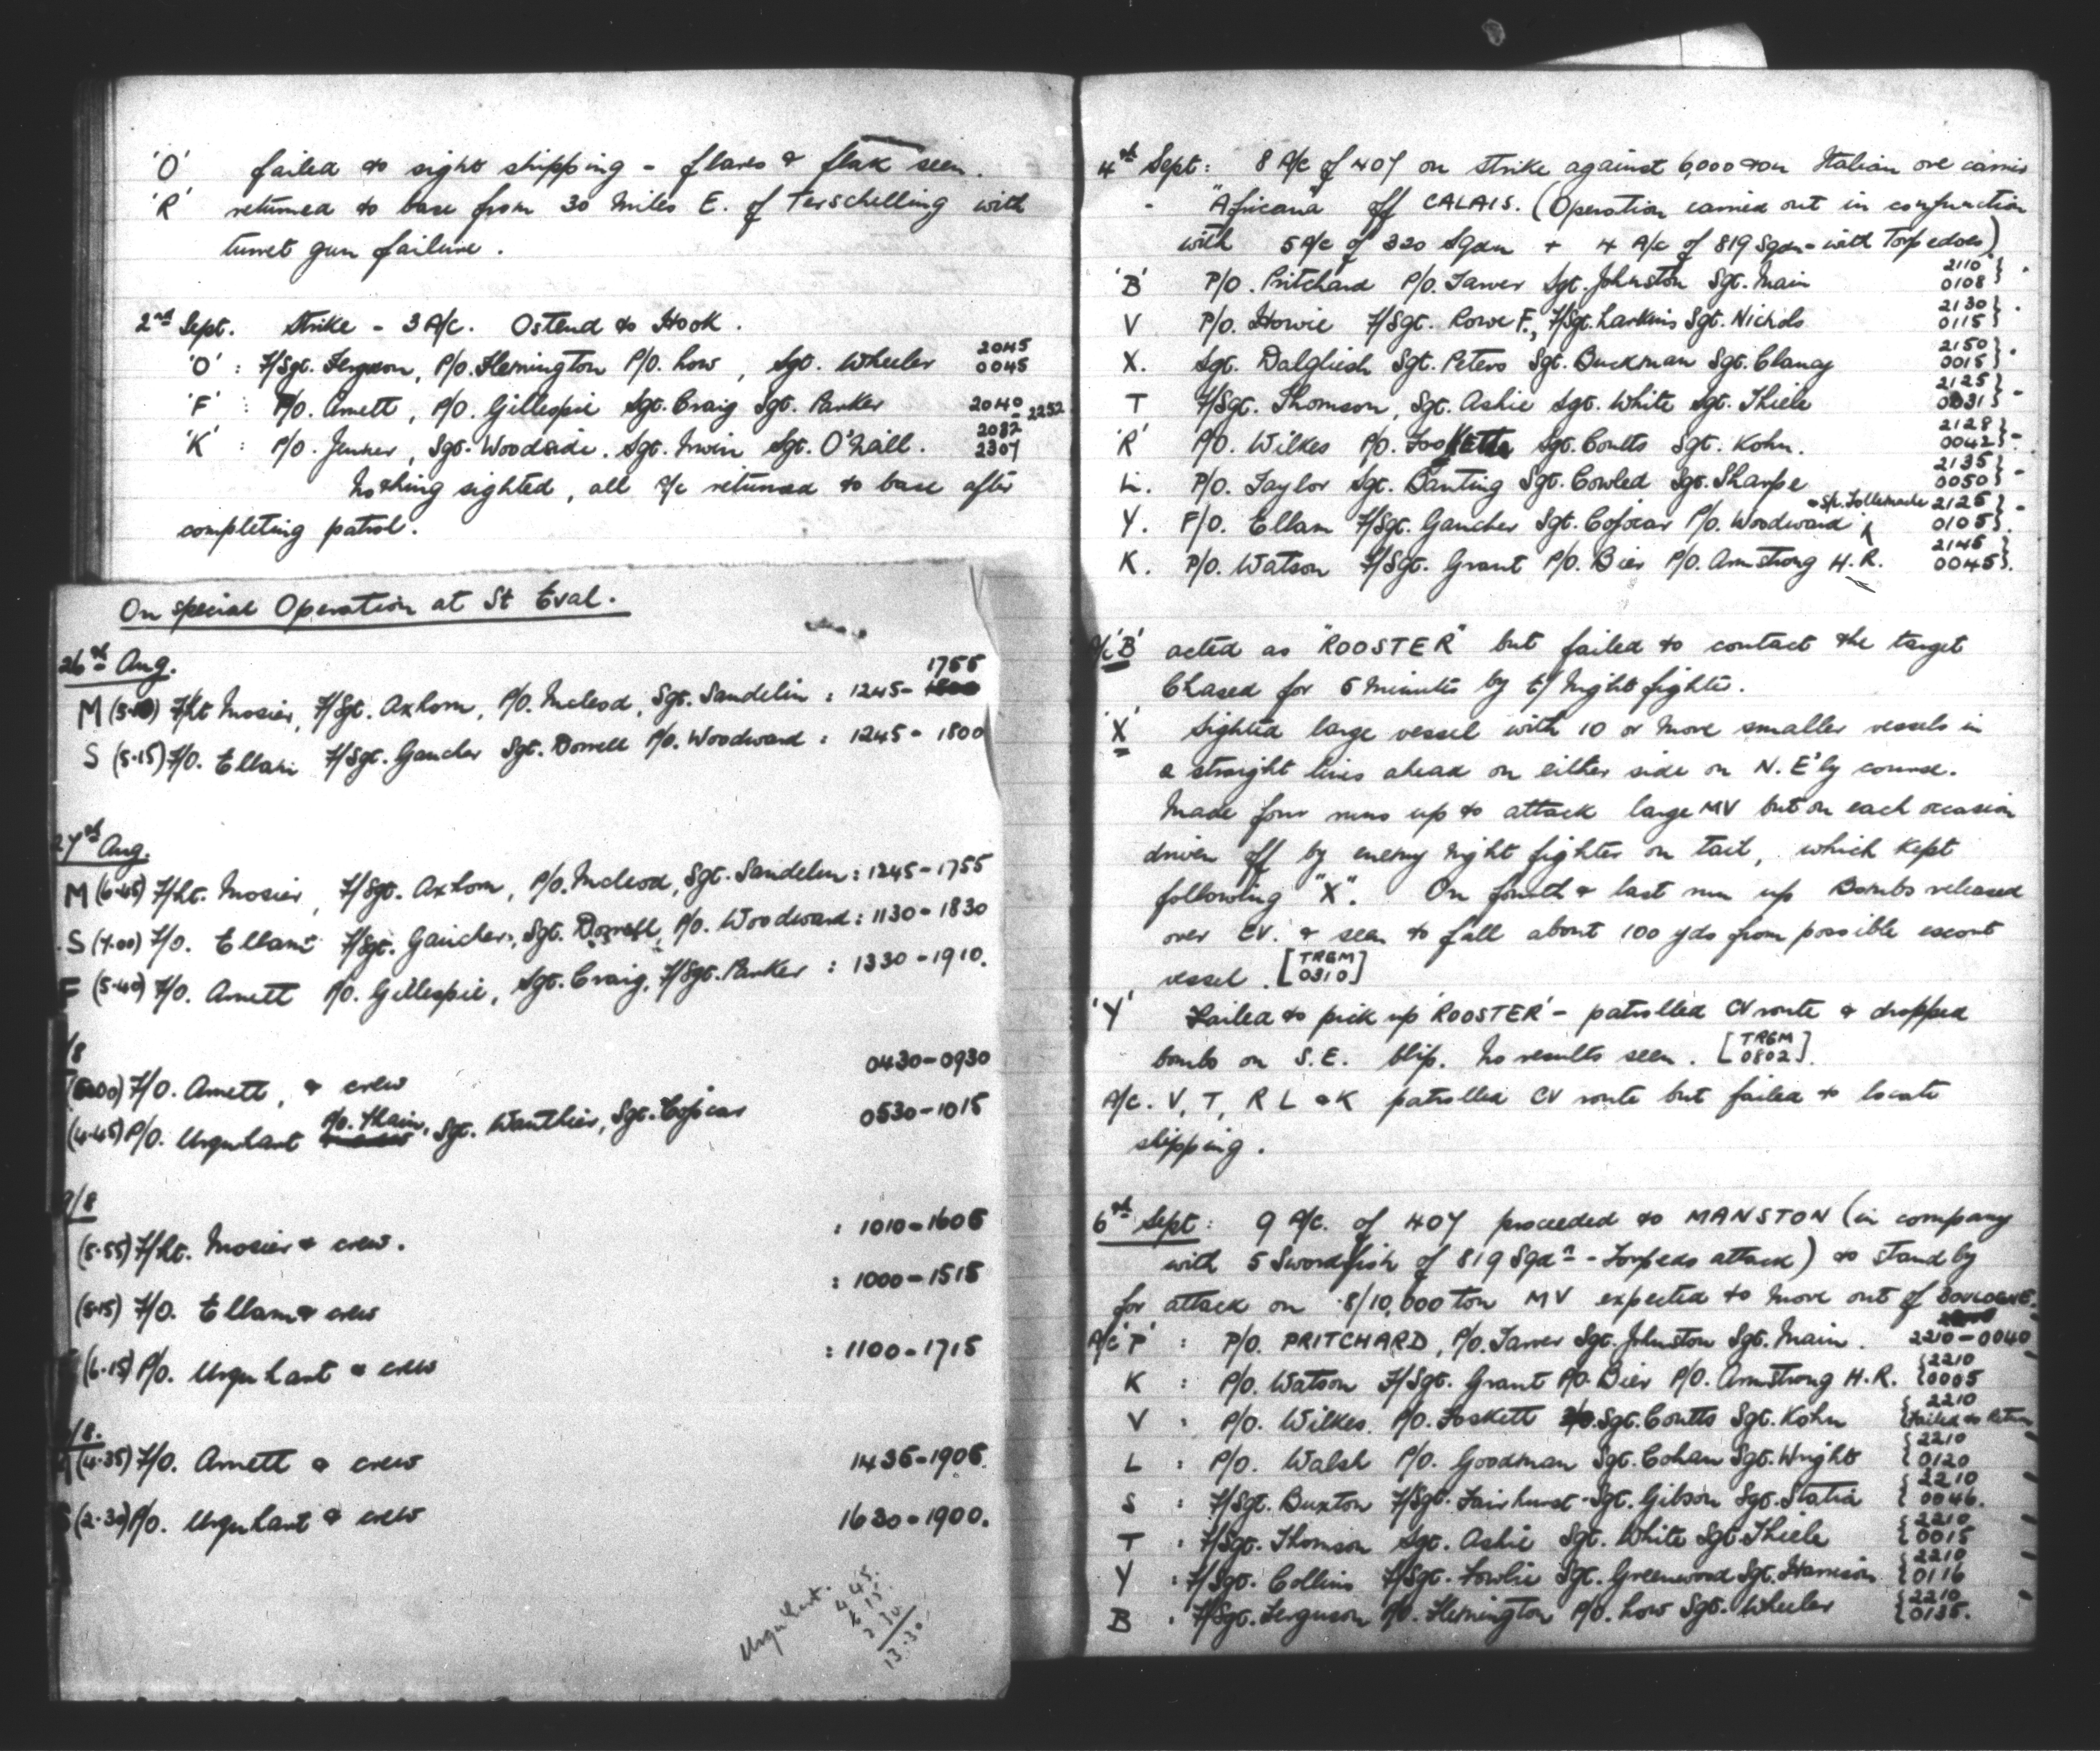 'O' failed to sight shipping - flares & flak seen.
'R' returned to base from 30 miles E. of Terschelling with
turret gun failure.
2nd Sept. Strike - 3 A/c. Ostend to Hook.
'O' : F/Sgt. Ferguson, P/O. Flemington P/O. Low, Sgt. Wheeler 2045 0045
'F' : P/O. Arnett, P/O. Gillespie Sgt. Craig Sgt. Parker 2040 - 2252
'K' : P/O. Jenner, Sgt. Woodside. Sgt. Irwin Sgt. O'Neill. 2037 2307
Nothing sighted, all a/c returned to base after
completing patrol.
On special Operation at St Eval.
26th Aug.
M F/Lt Mosier, F/Sgt. Axhorn, P/O. Mcleod, Sgt. Sandelin : 1245 - 1755
S (5.15) F/O. Ellam F/Sgt. Gaucher Sgt. Dorrell P/O. Woodward : 1245 - 1800
27th Aug.
M F/Lt. Mosier, F/Sgt. Axhorn, P/O. Mcleod, Sgt. Sandelin : 1245 - 1755
S (7.00) F/O. Ellam F/Sgt. Gaucher, Sgt. Dorrell, P/O. Woodward : 1130 - 1830
F (5.40) F/O. Arnett P/O. Gillespie, Sgt. Craig, F/Sgt. Parker : 1330 - 1910.
/8
F/O. Arnett, & crew 0430 - 0930
(4.45) P/O. Urquhart P/O. Thain, Sgt. Wauthier, Sgt. Cojocar 0530 - 1015
9/8
(5.55) F/Lt. Mosier & crew. : 1010 - 1605
(5.15) F/O. Ellam & crew : 1000 - 1515
(6.15) P/O. Urquhart & crew : 1100 - 1715
/8.
(4.35) F/O. Arnett & crew 1435 - 1905.
(2.30) P/O. Urquhart & crew 1630 - 1900.
Urquhart. 4.45.
6 15.
2 30.
13.30.
4th Sept: 8 A/c of 407 on strike against 6,000 ton Italian ore carrier
- "Africana" off CALAIS. (Operation carried out in conjunction
with 5 A/c of 320 Sqdn + 4 A/c of 819 Sqdn - with Torpedoes)
'B' P/O. Pritchard P/O. Tarver Sgt. Johnston Sgt. Main 2110 0108
V P/O. Howie F/Sgt. Rowe F., F/Sgt. Larkins Sgt. Nichols 2130 0115
X. Sgt. Dalgliesh Sgt. Peters Sgt. Buckman Sgt. Clancy 2150 0015
T F/Sgt. Thomson, Sgt. Ashie Sgt. White Sgt. Thiele 2125 0031
'R' P/O. Wilkes P/O. Foskett Sgt. Coutts Sgt. Kohn. 2128 0042
L. P/O. Taylor Sgt. Banting Sgt. Cowled Sgt. Sharpe 2135 0050
Y. F/O. Ellam F/Sgt. Gaucher Sgt. Cojocar P/O. Woodward + S/Ldr. Tollemache 2125 0105
K. P/O. Watson F/Sgt. Grant P/O. Bier P/O. Armstrong H.R. 2145 0045
A/c 'B' acted as "ROOSTER" but failed to contact the target
Chased for 5 minutes by E/ Night fighter.
'X' Sighted large vessel with 10 or more smaller vessels in
a straight lines ahead on either side on N.E'ly course.
Made four runs up to attack large MV but on each occasion
driven off by enemy night fighter on tail, which kept
following "X". On fourth & last run up Bombs released
over CV. & seen to fall about 100 yds from possible escort
vessel. [TRGM 0310]
'Y' Failed to pick up 'ROOSTER' - patrolled CV route & dropped
bombs on S.E. blip. No results seen. [TRGM 0802].
A/c. V, T, R L & K patrolled CV route but failed to locate
shipping.
6th Sept: 9 A/c. of 407 proceeded to MANSTON (in company
with 5 Swordfish of 819 Sqdn - Torpedo attack) to stand by
for attack on 8/10,000 ton MV expected to move out of BOULOGNE.
A/c 'P' : P/O. PRITCHARD, P/O. Tarver Sgt. Johnston Sgt. Main. 2210 - 0040
K : P/O. Watson F/Sgt. Grant P/O. Bier P/O. Armstrong H.R. 2210 0005
V : P/O. Wilkes. P/O. Foskett Sgt. Coutts Sgt. Kohn 2210 Failed to Return
L : P/O. Walsh P/O. Goodman Sgt. Cohan Sgt. Wright 2210 0120
S : F/Sgt. Buxton F/Sgt. Fairhurst Sgt. Gibson Sgt. Statia 2210 0046.
T : F/Sgt. Thomson Sgt. Ashie Sgt. White Sgt. Thiele 2210 0015
Y : F/Sgt. Collins F/Sgt. Fowlie Sgt. Greenwood Sgt. Harrison 2210 0116
B : F/Sgt. Ferguson P/O. Flemington P/O. Low Sgt. Wheeler 2210 0135.